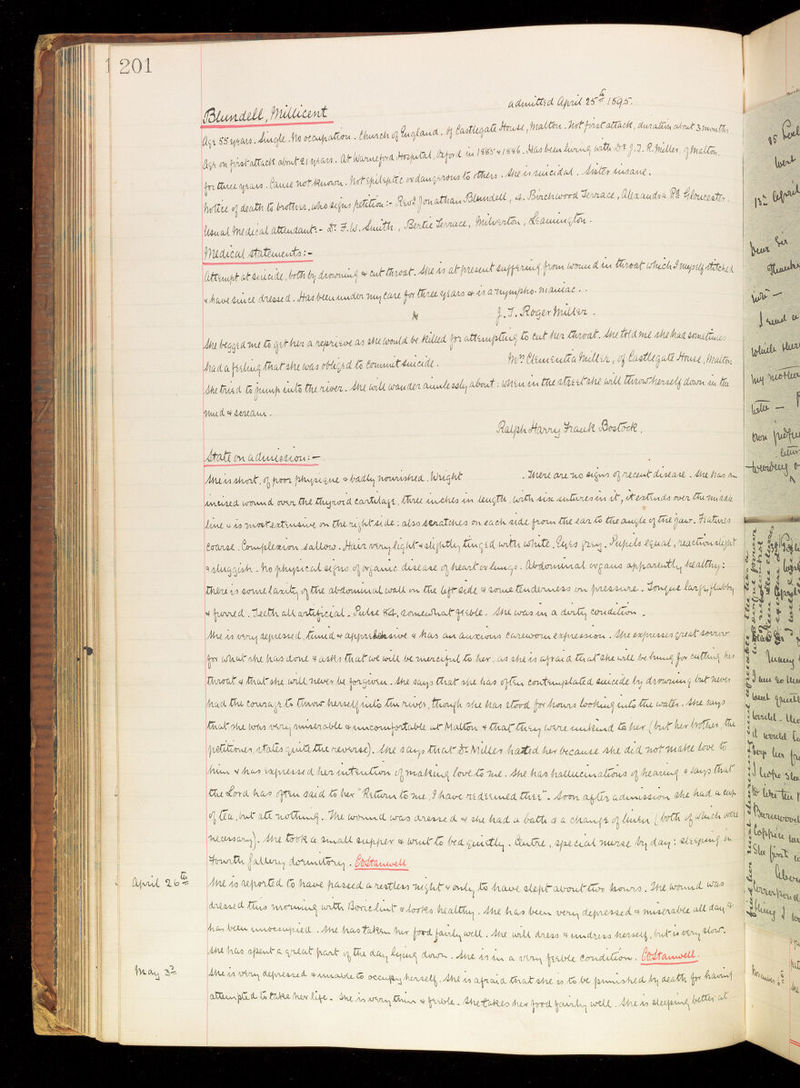 201
admitted April 25th 1895.
Blundell, Millicent
Age 55 years. Single. No occupation. Church of England. Of Castlegate House, Malton. Not first attack, duration about 3 months.
Age on first attack about 21 years. At Warneford Hospital, Oxford in 1885 & 1886. Has been living with Dr J. T. R. Miller, of Malton,
for three years. Cause not known. Not epileptic or dangerous to others. She is suicidal. Sister insane.
Notice of death to brother, who signs petition:- Revd Jonathan Blundell, 4, Birchwood Terrace, Alexandra Rd Gloucester.
Usual Medical attendant:- Dr F. W. Smith, Bertie Terrace, Milverton, Leamington.
Medical statements:-
Attempt at suicide, both by drowning & cut throat. She is at present suffering from wound in throat which I myself stitched
& have since dressed. Has been under my care for three years & is a nympho-maniac.
J. T. Roger Miller.
She begged me to get her a reprieve as she would be killed for attempting to cut her throat. She told me she had sometimes
had a feeling that she was obliged to commit suicide. Mrs Clementia Miller, of Castlegate House, Malton
She tried to jump into the river. She will wander aimlessly about: when in the street she will throw herself down in the
mud & scream.
Ralph Harry Frank Bostock.
State on admission:-
She is short, of poor physique & badly nourished. Weight . There are no signs of recent disease. She has an
incised wound over the thyroid cartilage, three inches in length with six sutures in it, it extends over the middle
line & is most extensive on the right side: also scratches on each side from the ear to the angle of the jaw. Features
coarse. Complexion sallow. Hair very light & slightly tinged with white. Eyes grey. Pupils equal, reaction slight
& sluggish. No physical signs of organic disease of heart or lungs. Abdominal organs apparently healthy:
there is some laxity of the abdominal wall on the left side & some tenderness on pressure. Tongue large, flabby
& furred. Teeth all artificial. Pulse 84, somewhat feeble. She was in a dirty condition.
She is very depressed, timid & apprehensive & has an anxious careworn expression. She expresses great sorrow
for what she has done & asks that we will be merciful to her, as she is afraid that she will be hung for cutting her
throat & that she will never be forgiven. She says that she has often contemplated suicide by drowning but never
had the courage to throw herself into the river, though she has stood for hours looking into the water. She says
that she was very miserable & uncomfortable at Malton & that they were unkind to her (but her brother, the
petitioner, states quite the reverse). She says that Dr Miller hated her because she did not make love to
him & has expressed her intention of making love to me. She has hallucinations of hearing & says that
the Lord has often said to her "Return to me, I have redeemed thee". Soon after admission she had a cup
of tea, but ate nothing. The wound was dressed & she had a bath & a change of linen (both of which were
necessary). She took a small supper & went to bed quietly. Centre, special nurse by day: sleeping in
Fourth Gallery dormitory. CStanwell
April 26th
She is reported to have passed a restless night & only to have slept about two hours. The wound was
dressed this morning with Boric lint & looks healthy. She has been very depressed & miserable all day &
has been unoccupied. She has taken her food fairly well. She will dress & undress herself, but is very slow.
She has spent a great part of the day lying down. She is in a very feeble condition. CStanwell.
May 3rd
She is very depressed & unable to occupy herself. She is afraid that she is to be punished by death for having
attempted to take her life. She is very thin & feeble. She takes her food fairly well. She is sleeping better at